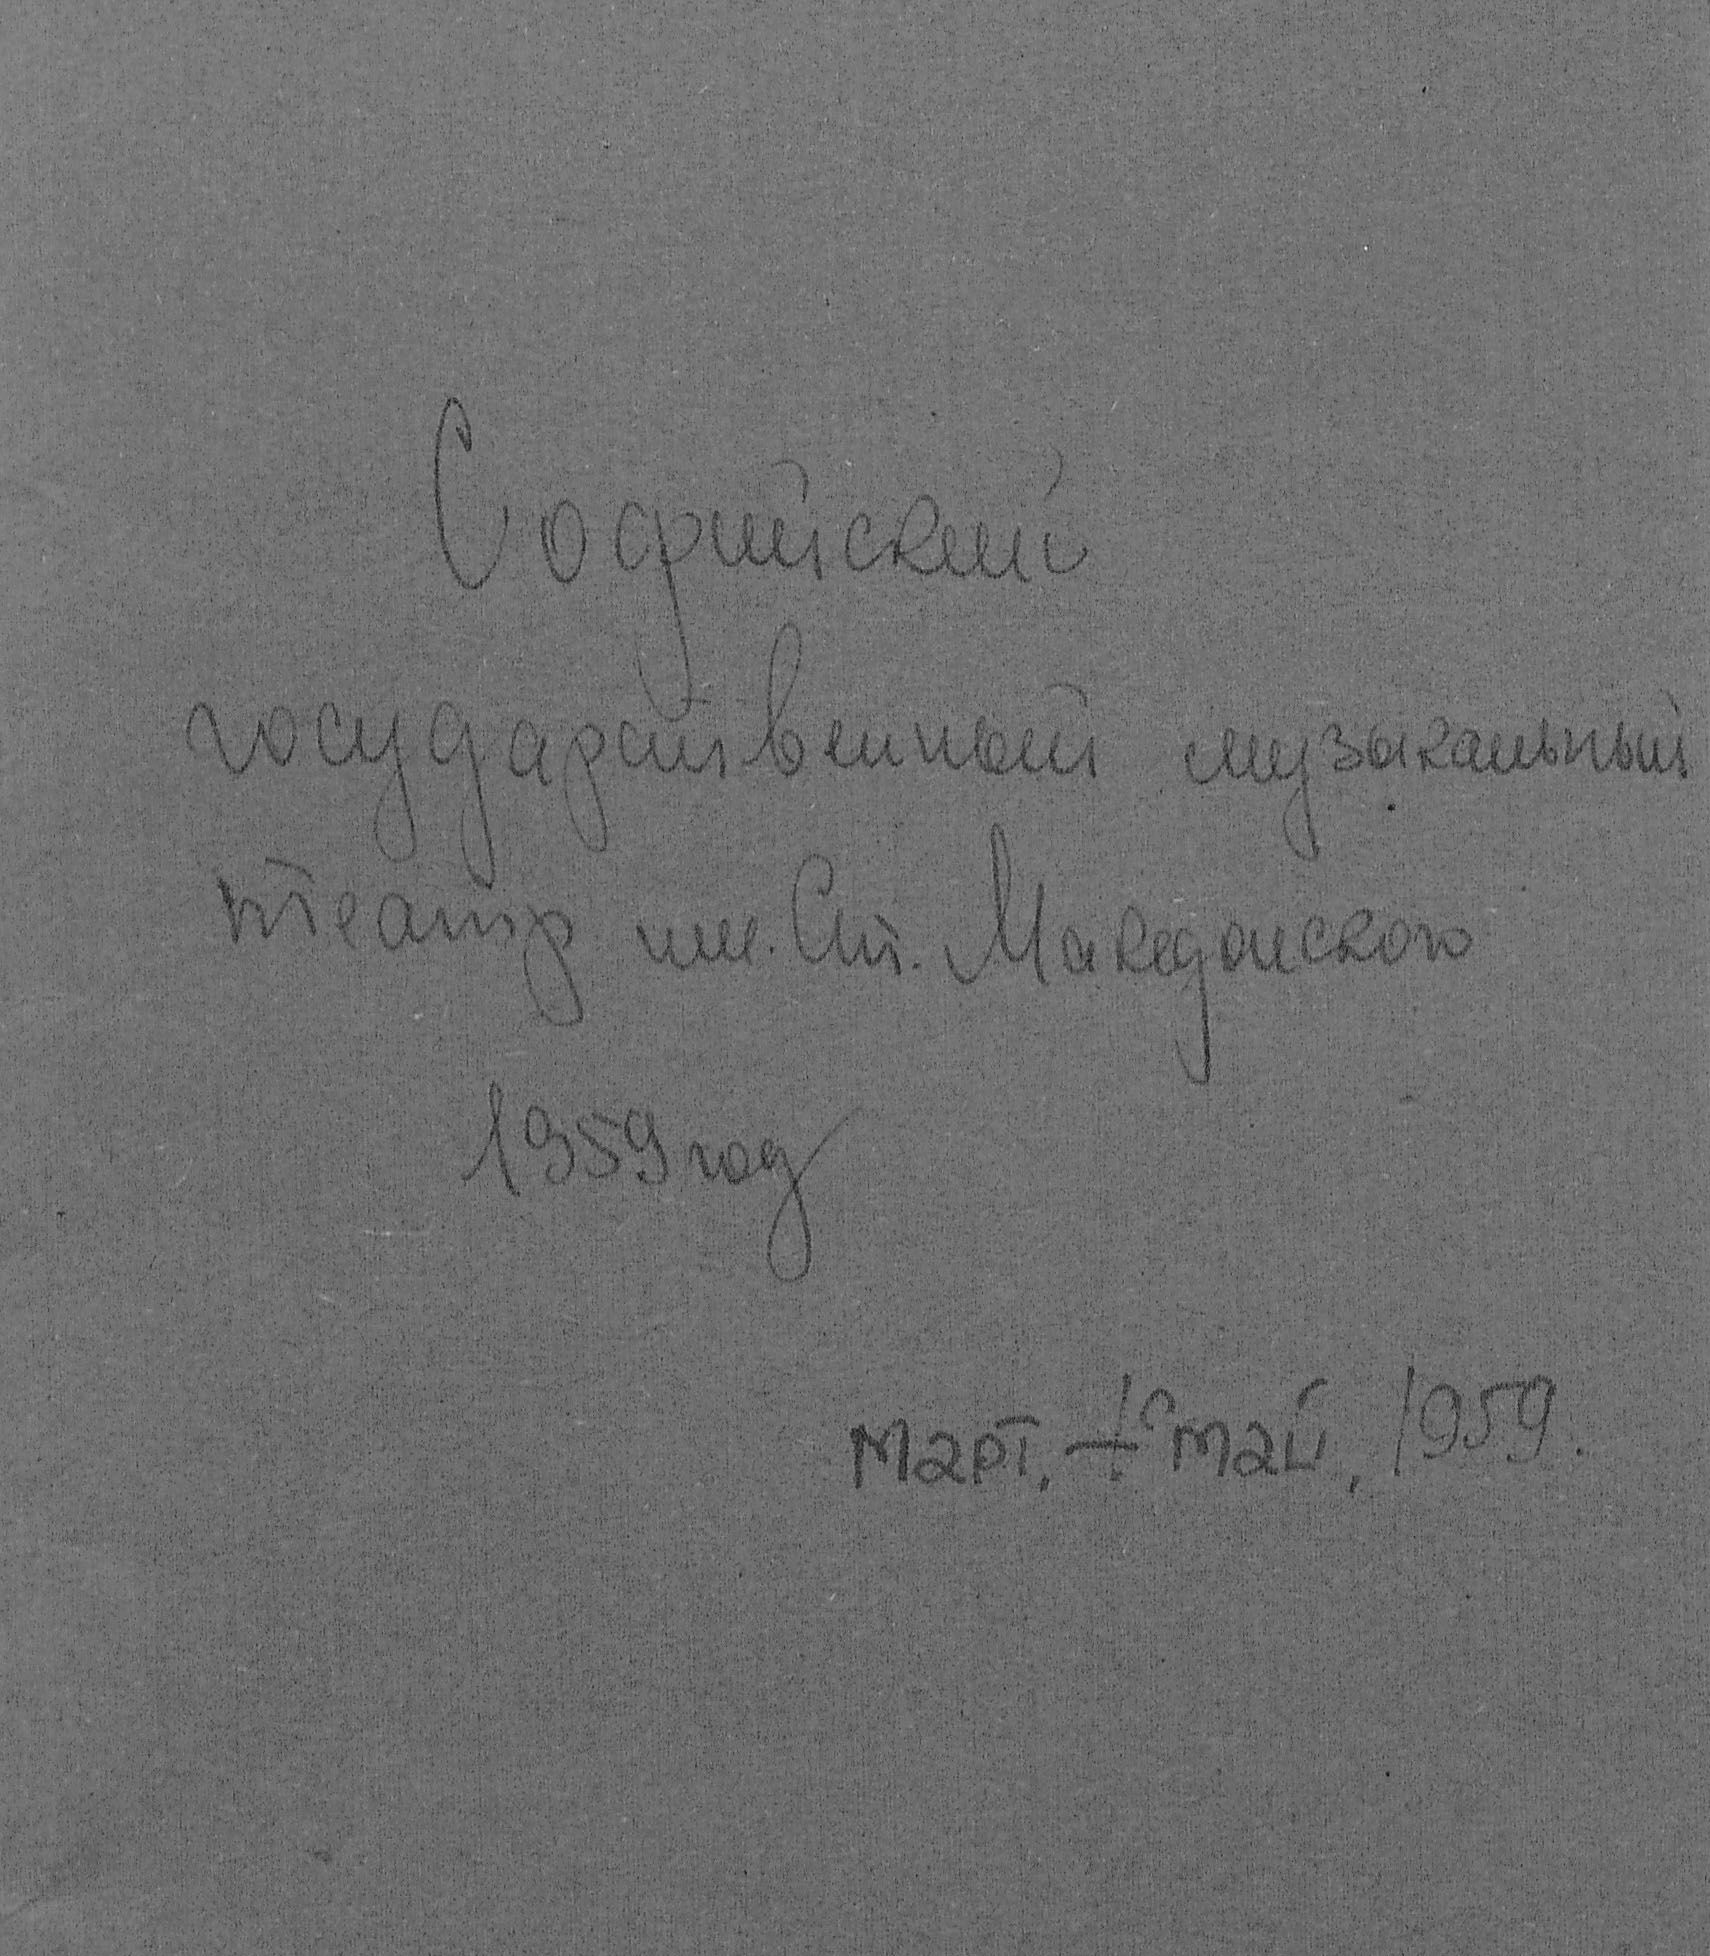 Софийский
государственный музыкальный
театр им. Ст. Македонского
1959 год
март. ÷ май, 1959.